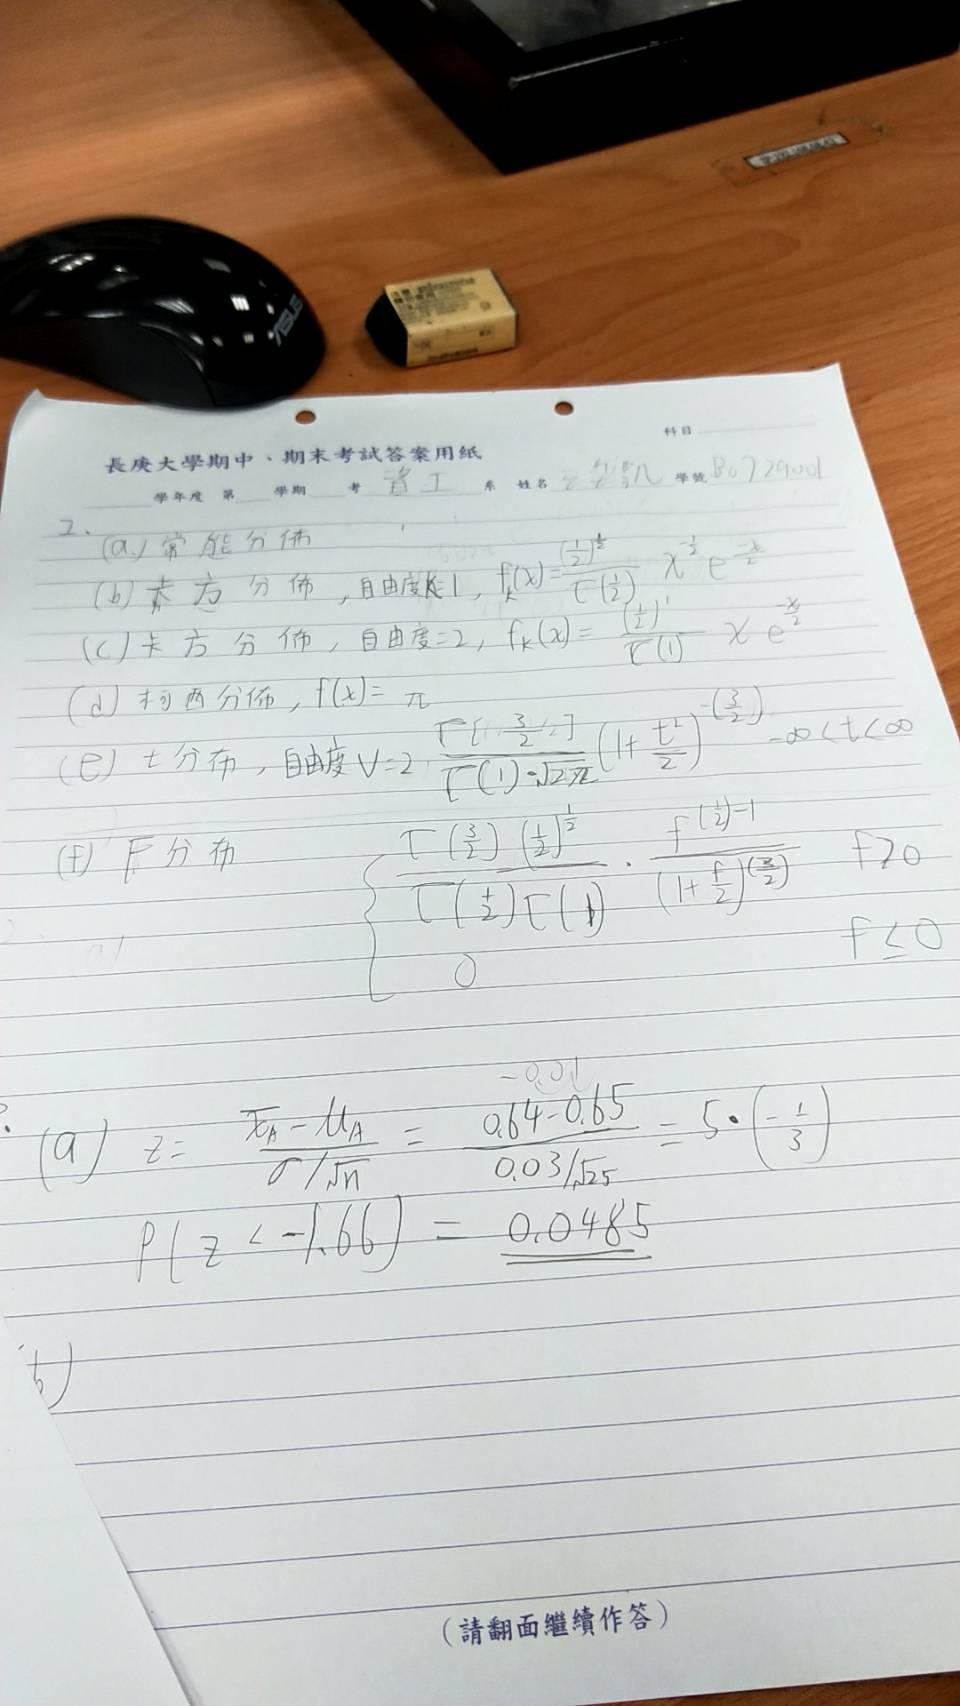 ASUS
科目
長庚大學期中、期末考試答案用紙
學年度 第 學期 考 資工 系 姓名 學號 B0729001
2.
(a) 常態分佈
(b) 卡方分佈, 自由度K=1, fₖ(x)= (1/2)^(1/2) / Γ(1/2) x^(-1/2) e^(-x/2)
(c) 卡方分佈, 自由度=2, fₖ(x)= (1/2)^1 / Γ(1) x e^(-x/2)
(d) 柯西分佈, f(x)= π
(e) t分布, 自由度V=2, Γ[3/2] / Γ(1)·√2π (1+t²/2)^-(3/2) -∞<t<∞
(f) F分布 { Γ(3/2) (1/2)^(1/2) / Γ(1/2)Γ(1) · f^(1/2)-1 / (1+f/2)^(3/2) f>0
0 f≤0
-0.01
(a) z= x̄A-μA / σ/√n = 0.64-0.65 / 0.03/√25 = 5·(-1/3)
P(z<-1.66) = 0.0485
b)
(請翻面繼續作答)